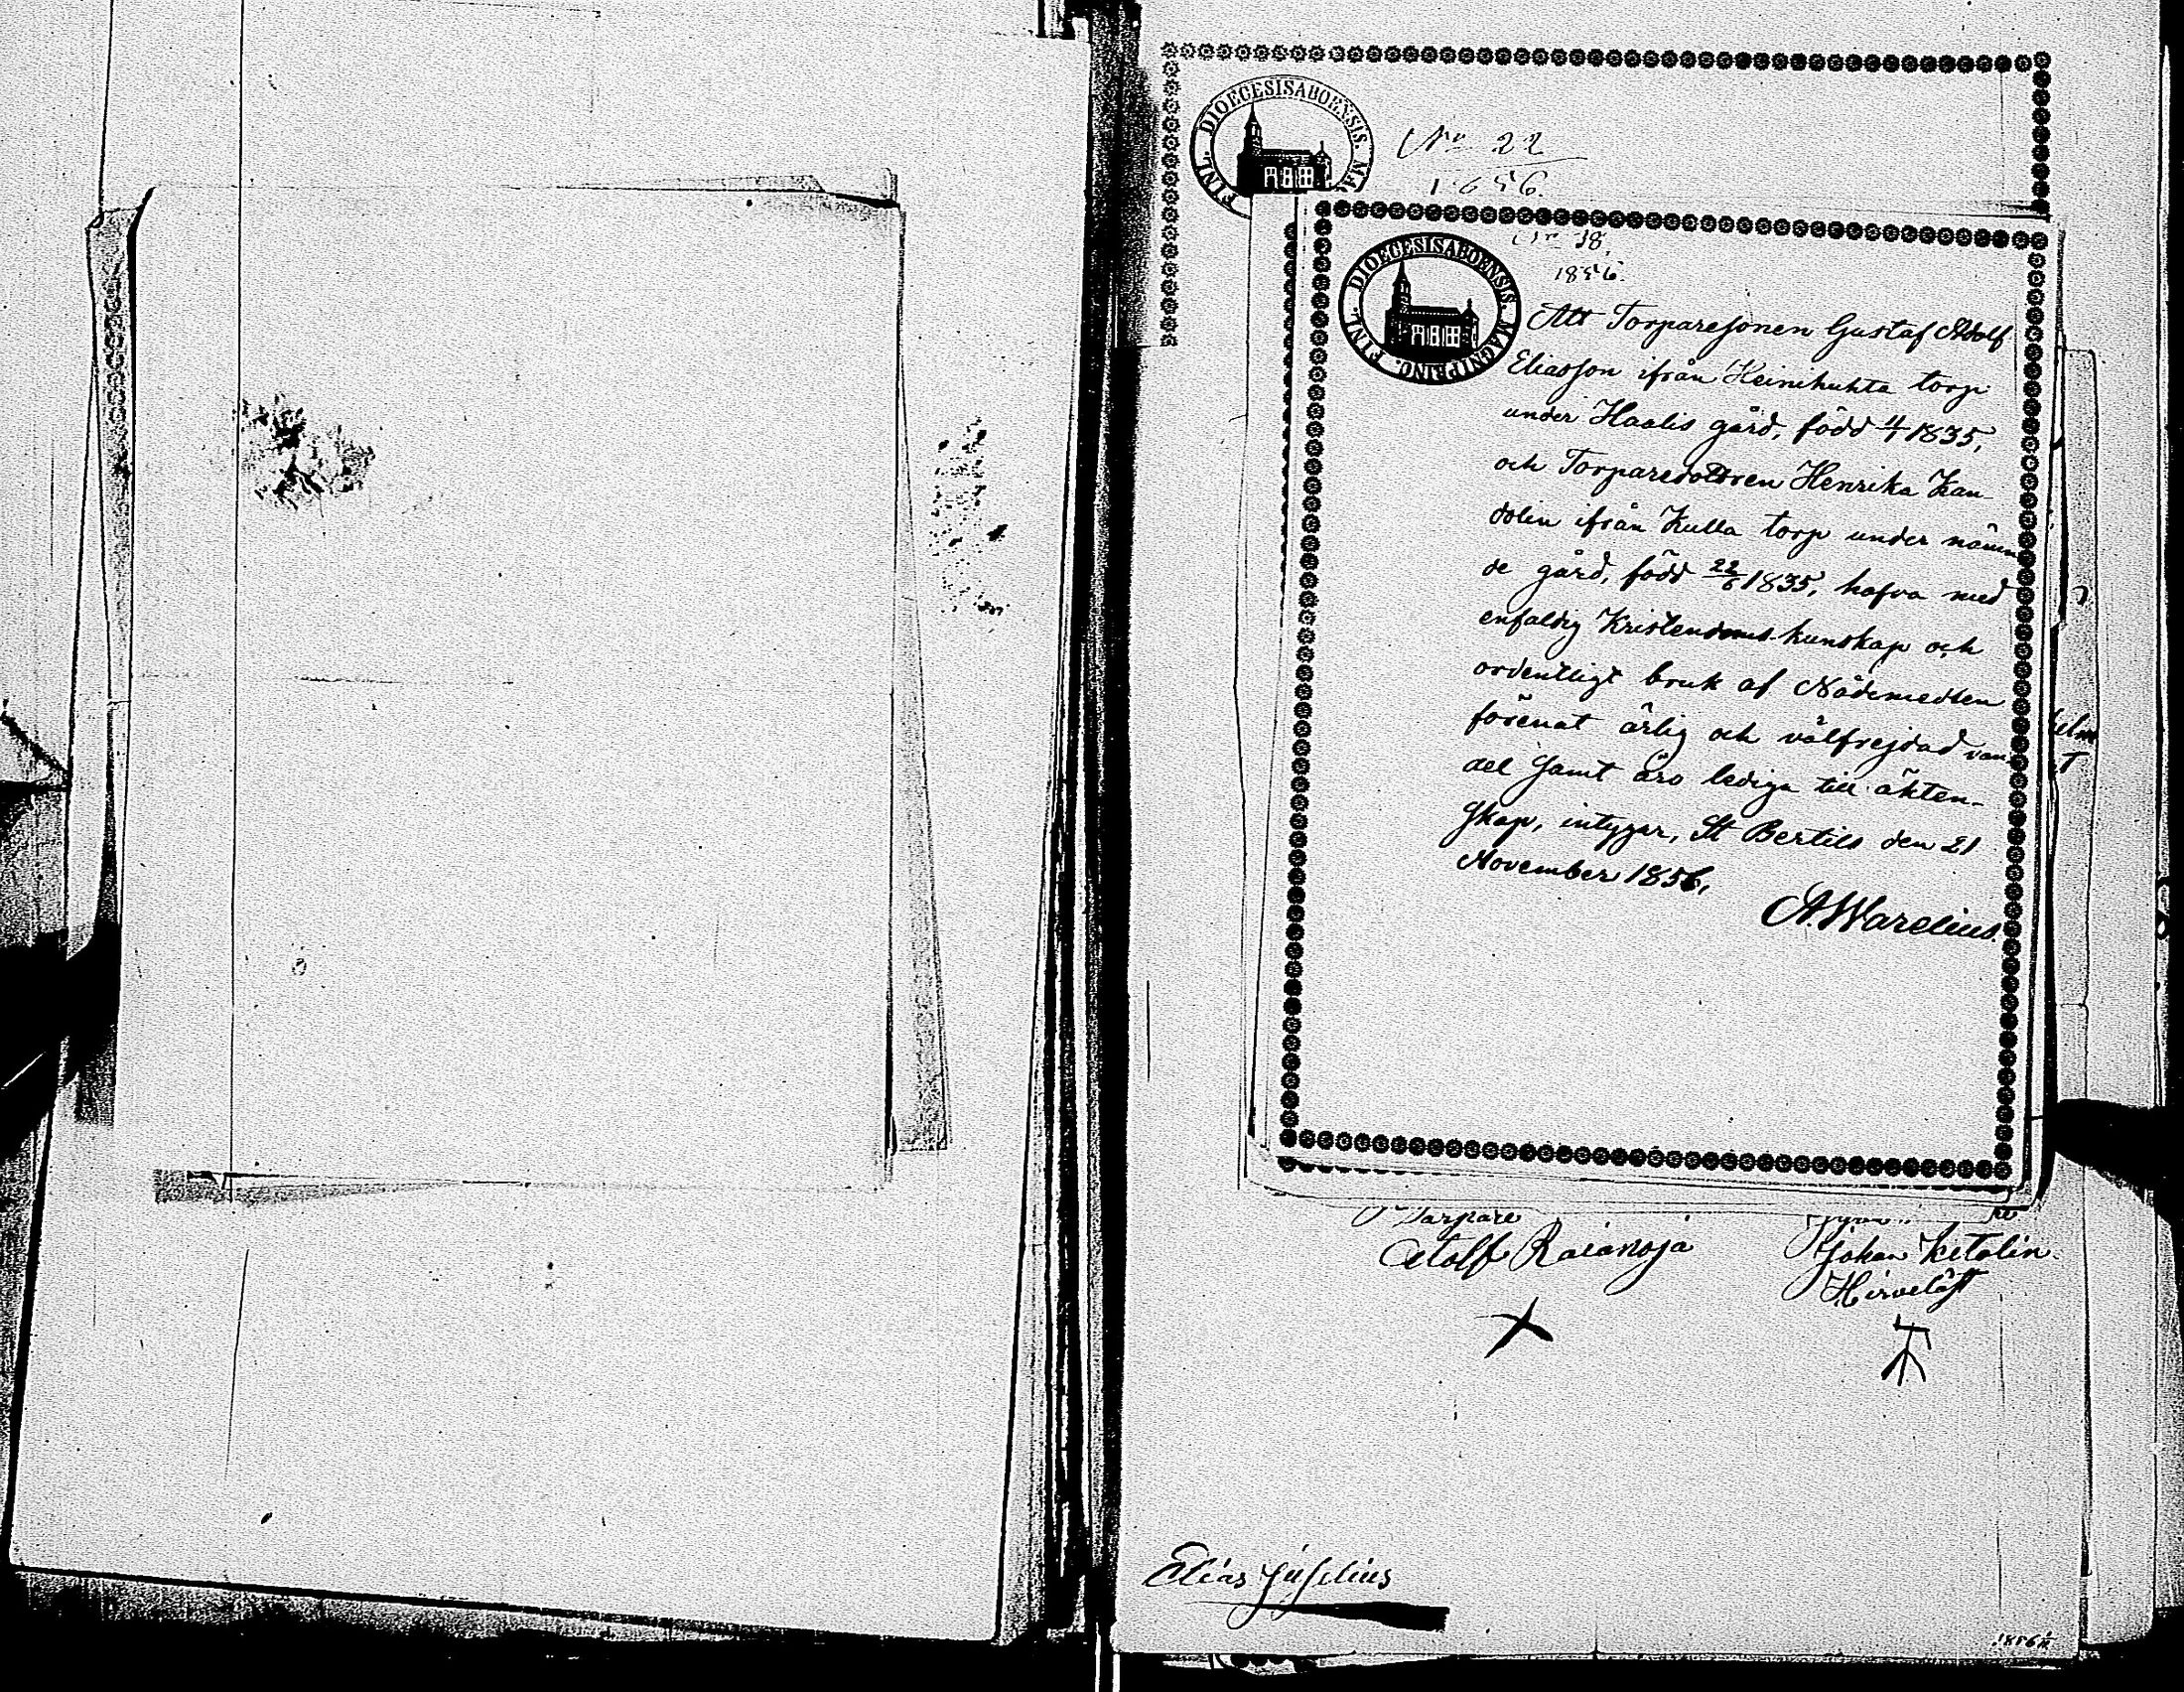 DIOECESIS ABOENSIS. MA
FINL.
No 22
1856.
DIOECESIS ABOENSIS. MAGNI PRINC. FINL.
No 18
1856.
Att Torparesonen Gustaf Adolf
Eliasson ifrån Heinikuhta torp
under Haalis gård, född 4/1 1835,
och Torparedottren Henrika Kan-
dolin ifrån Kulla torp under nämn
de gård, född 22/6 1835, hafva med
enfaldig Kristendomskunskap och
ordentligt bruk af Nådemedlen
förenat ärlig och välfrejdad van
del samt äro lediga till äkten-
skap, intygar, St Bertils den 21
November 1856,
A. Warelius.
Torpare
Adolf
Johan
X
Elias
1856